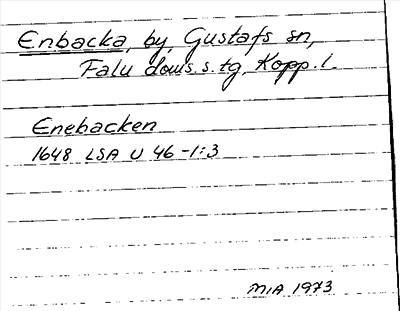 Enbacka, by, Gustafs sn,
Falu doms.s.tg, Kopp.l.
Enebacken
1648 LSA U 46-1:3
MIA 1973